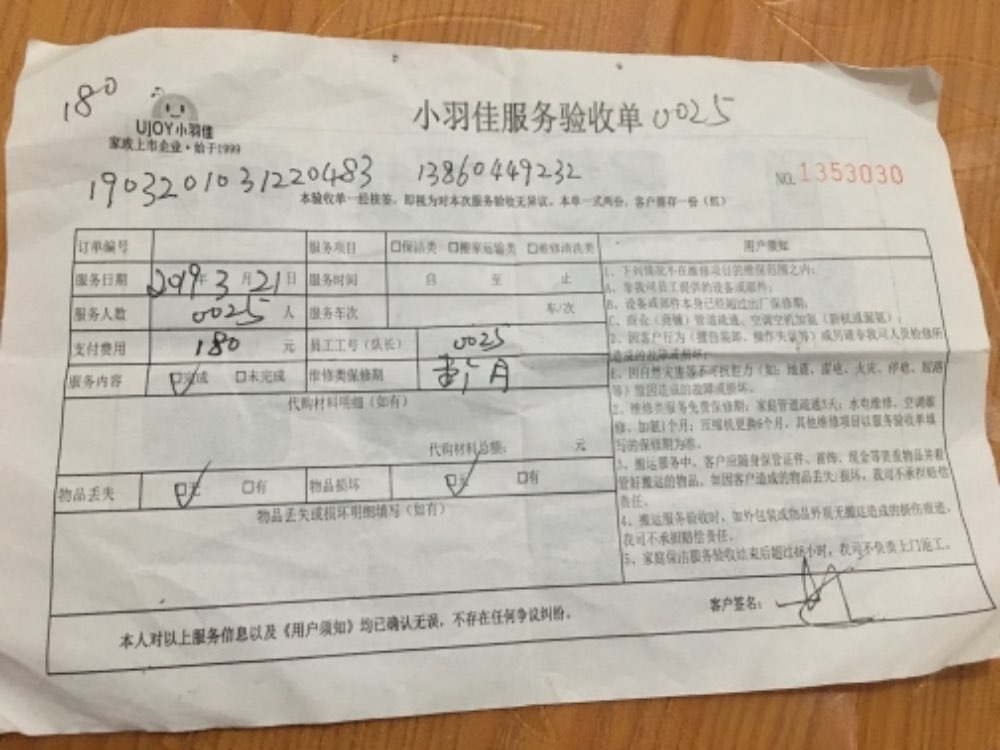 180
UJOY小羽佳
家政上市企业·始于1999
小羽佳服务验收单 0025
1903201031220483 13860449232
NO. 1353030
本验收单一经核签,即视为对本次服务验收无异议。本单一式两份,客户留存一份(红)
订单编号 服务项目 □保洁类 □搬家运输类 □维修清洗类
服务日期 2019年3月21日 服务时间 自 至 止
服务人数 0025 人 服务车次 车/次
支付费用 180 元 员工工号(队长) 0025
服务内容 □完成 □未完成 维修类保修期 月
代购材料明细(如有)
代购材料总额: 元
物品丢失 □无 □有 物品损坏 □无 □有
物品丢失或损坏明细填写(如有)
用户须知
1、下列情况不在维修项目的维保范围之内:
A、非我司员工提供的设备或部件;
B、设备或部件本身已经超过出厂保修期;
C、商业(商铺)管道疏通、空调空机加氨(新机或漏氨);
D、因客户行为(擅自装卸、操作失误等)或另请非我司人员检修所
造成的故障或损坏;
E、因自然灾害等不可抗拒力(如:地震、雷电、火灾、停电、短路
等)原因造成的故障或损坏。
2、维修类服务免费保修期:家庭管道疏通3天;水电维修、空调维
修、加氨1个月;压缩机更换6个月。其他维修项目以服务验收单填
写的保修期为准。
3、搬运服务中,客户应随身保管证件、首饰、现金等贵重物品并看
管好搬运的物品。如因客户造成的物品丢失/损坏,我司不承担赔偿
责任。
4、搬运服务验收时,如外包装或物品外观无搬运造成的损伤痕迹,
我司不承担赔偿责任。
5、家庭保洁服务验收结束后超过48小时,我司不负责上门返工。
客户签名:
本人对以上服务信息以及《用户须知》均已确认无误,不存在任何争议纠纷。